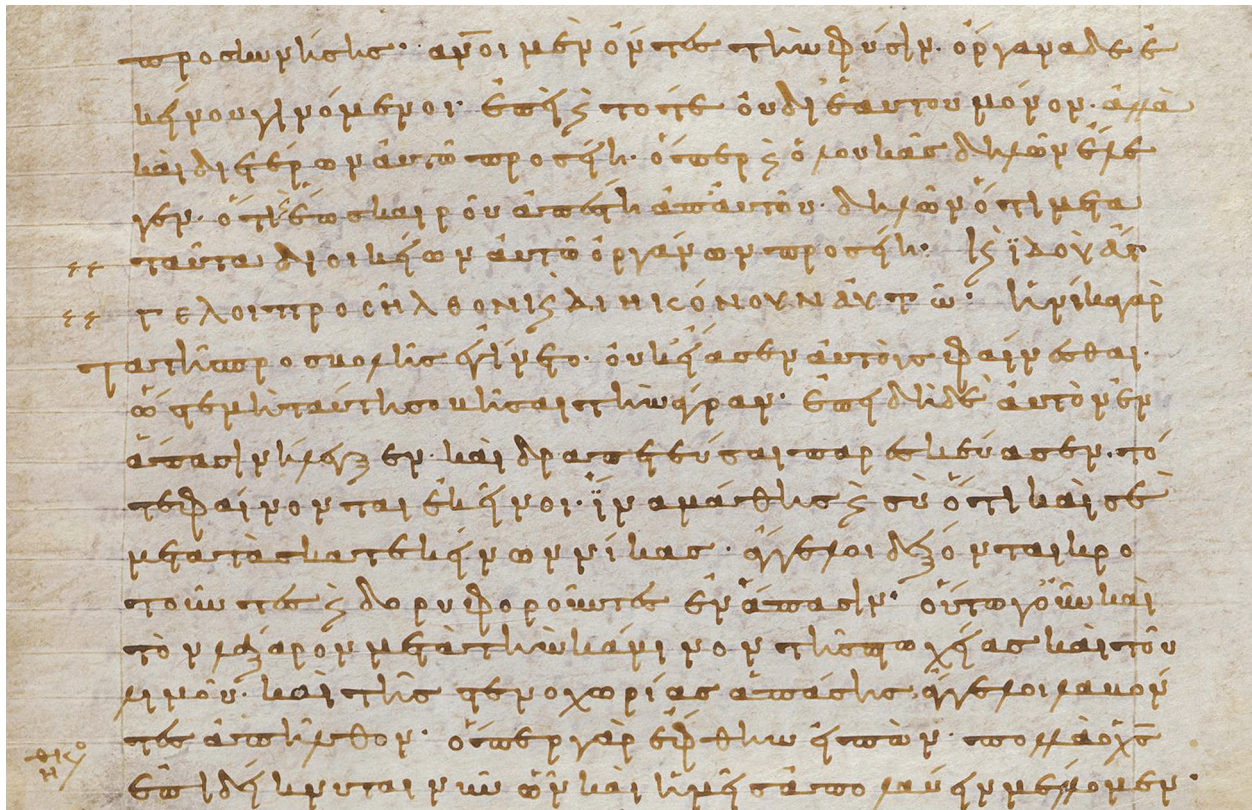 ἄνοι μὲν ὄντες τὴν φύσιν· ὄργανα δὲ ἐ
κείνου γινόμενοι· ἐπεὶ καὶ τότε οὐ δι' ἑαυτοῦ μόνον· ἀλλὰ
καὶ δι' ἑτέρων αὐτῶ προσήει· ὅπερ καὶ ὁ λουκᾶς δηλῶν ἔλε
γεν· ὅτι ἕως καιροῦ ἀπέστη ἀπ' αὐτοῦ· δηλῶν ὅτι μετὰ
ταῦτα δι' οἰκείων αὐτῶ ὀργάνων προσήει· Καὶ ἰδοὺ ἄγ
γελοι προσῆλθον καὶ διηκόνουν αὐτῶ· ἡνίκα γὰρ
ἡ προσβολὴ ἐγίνετο· οὐκ εἴασεν αὐτοὺς φαίνεσθαι·
ὥστε μὴ ταύτη σοβῆσαι τὴν ἄγραν· ἐπειδὴ δὲ αὐτὸν ἐν
ἅπασιν ἤλεγξεν· καὶ δραπετεῦσαι παρεσκεύασεν· τό
τε φαίνονται ἐκεῖνοι· ἵνα μάθης καὶ σὺ ὅτι καὶ σὲ
μετὰ τὰς κατ' ἐκείνων νίκας· ἄγγελοι δέξονται κρο
τοῦντες καὶ δορυφοροῦντες ἐν ἅπασιν· οὕτω γοῦν καὶ
τὸν λάζαρον μετὰ τὴν κάμινον τῆς πτωχείας καὶ τοῦ
λιμοῦ· καὶ τῆς στενοχωρίας ἁπάσης· ἄγγελοι λαβόν
τες ἀπῆλθον· ὅπερ γὰρ ἔφθην εἰπών· πολλὰ ὁ χς
ἐπιδείκνυται νῦν ὧν καὶ ἡμεῖς ἀπολαύειν μέλλομεν·